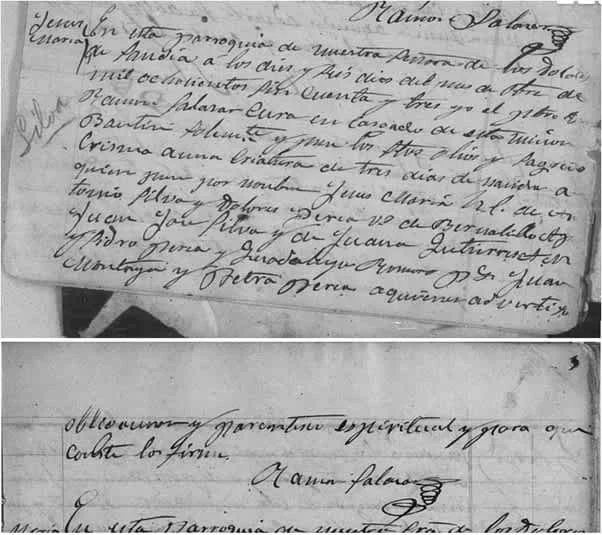 Ramon Salazar
Jesus
Maria
En esta parroquia de nuestra Senora de los Dolores
de Sandia a los dies y seis dias del mes de Obre de
mil ochosientos sin cuenta y tres yo el pbro D.
Ramon Salazar Cura en Cargado de esta micion
Bautisé solemte y puse los Stos olios y Sagrado
Crisma a una Criatura de tres dias de nasida a
quien puse por nombre Jesus Maria h. l. de An
tonio Silva y Dolores Perea Vs de Bernalillo A.P
Juan Jose Silva y de Juana Gutierres A.M
Ysidro Perea y Guadalupe Romero Ps Juan
Montoya y Petra Perea a quienes adverti su
Silva
3
obligacion y parentesco espiritual y para que
conste lo firme.
Ramon Salazar
Maria En esta Parroquia de nuestra Sra de los Dolores